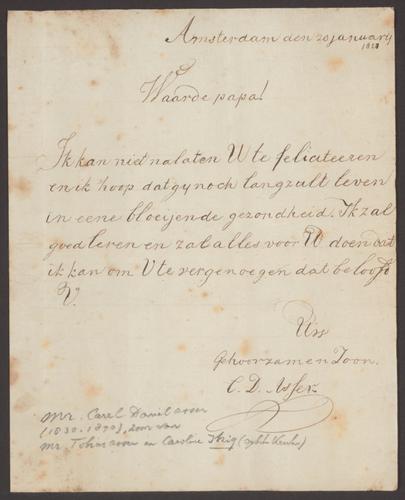 Amsterdam den 20 january
Waarde papa!
Ik kan niet nalaten U te feliciteeren
en ik hoop dat gy noch lang zult leven
in eene bloeijende gezondheid. Ik zal
goed leren en zal alles voor U doen dat
ik kan om U te vergenoegen dat beloof ik
U.
Uw
gehoorzamen Zoon.
C. D. Asser
Mr. Carel Daniel Asser
zoon van
Mr. Tobias Asser en Caroline Itzig